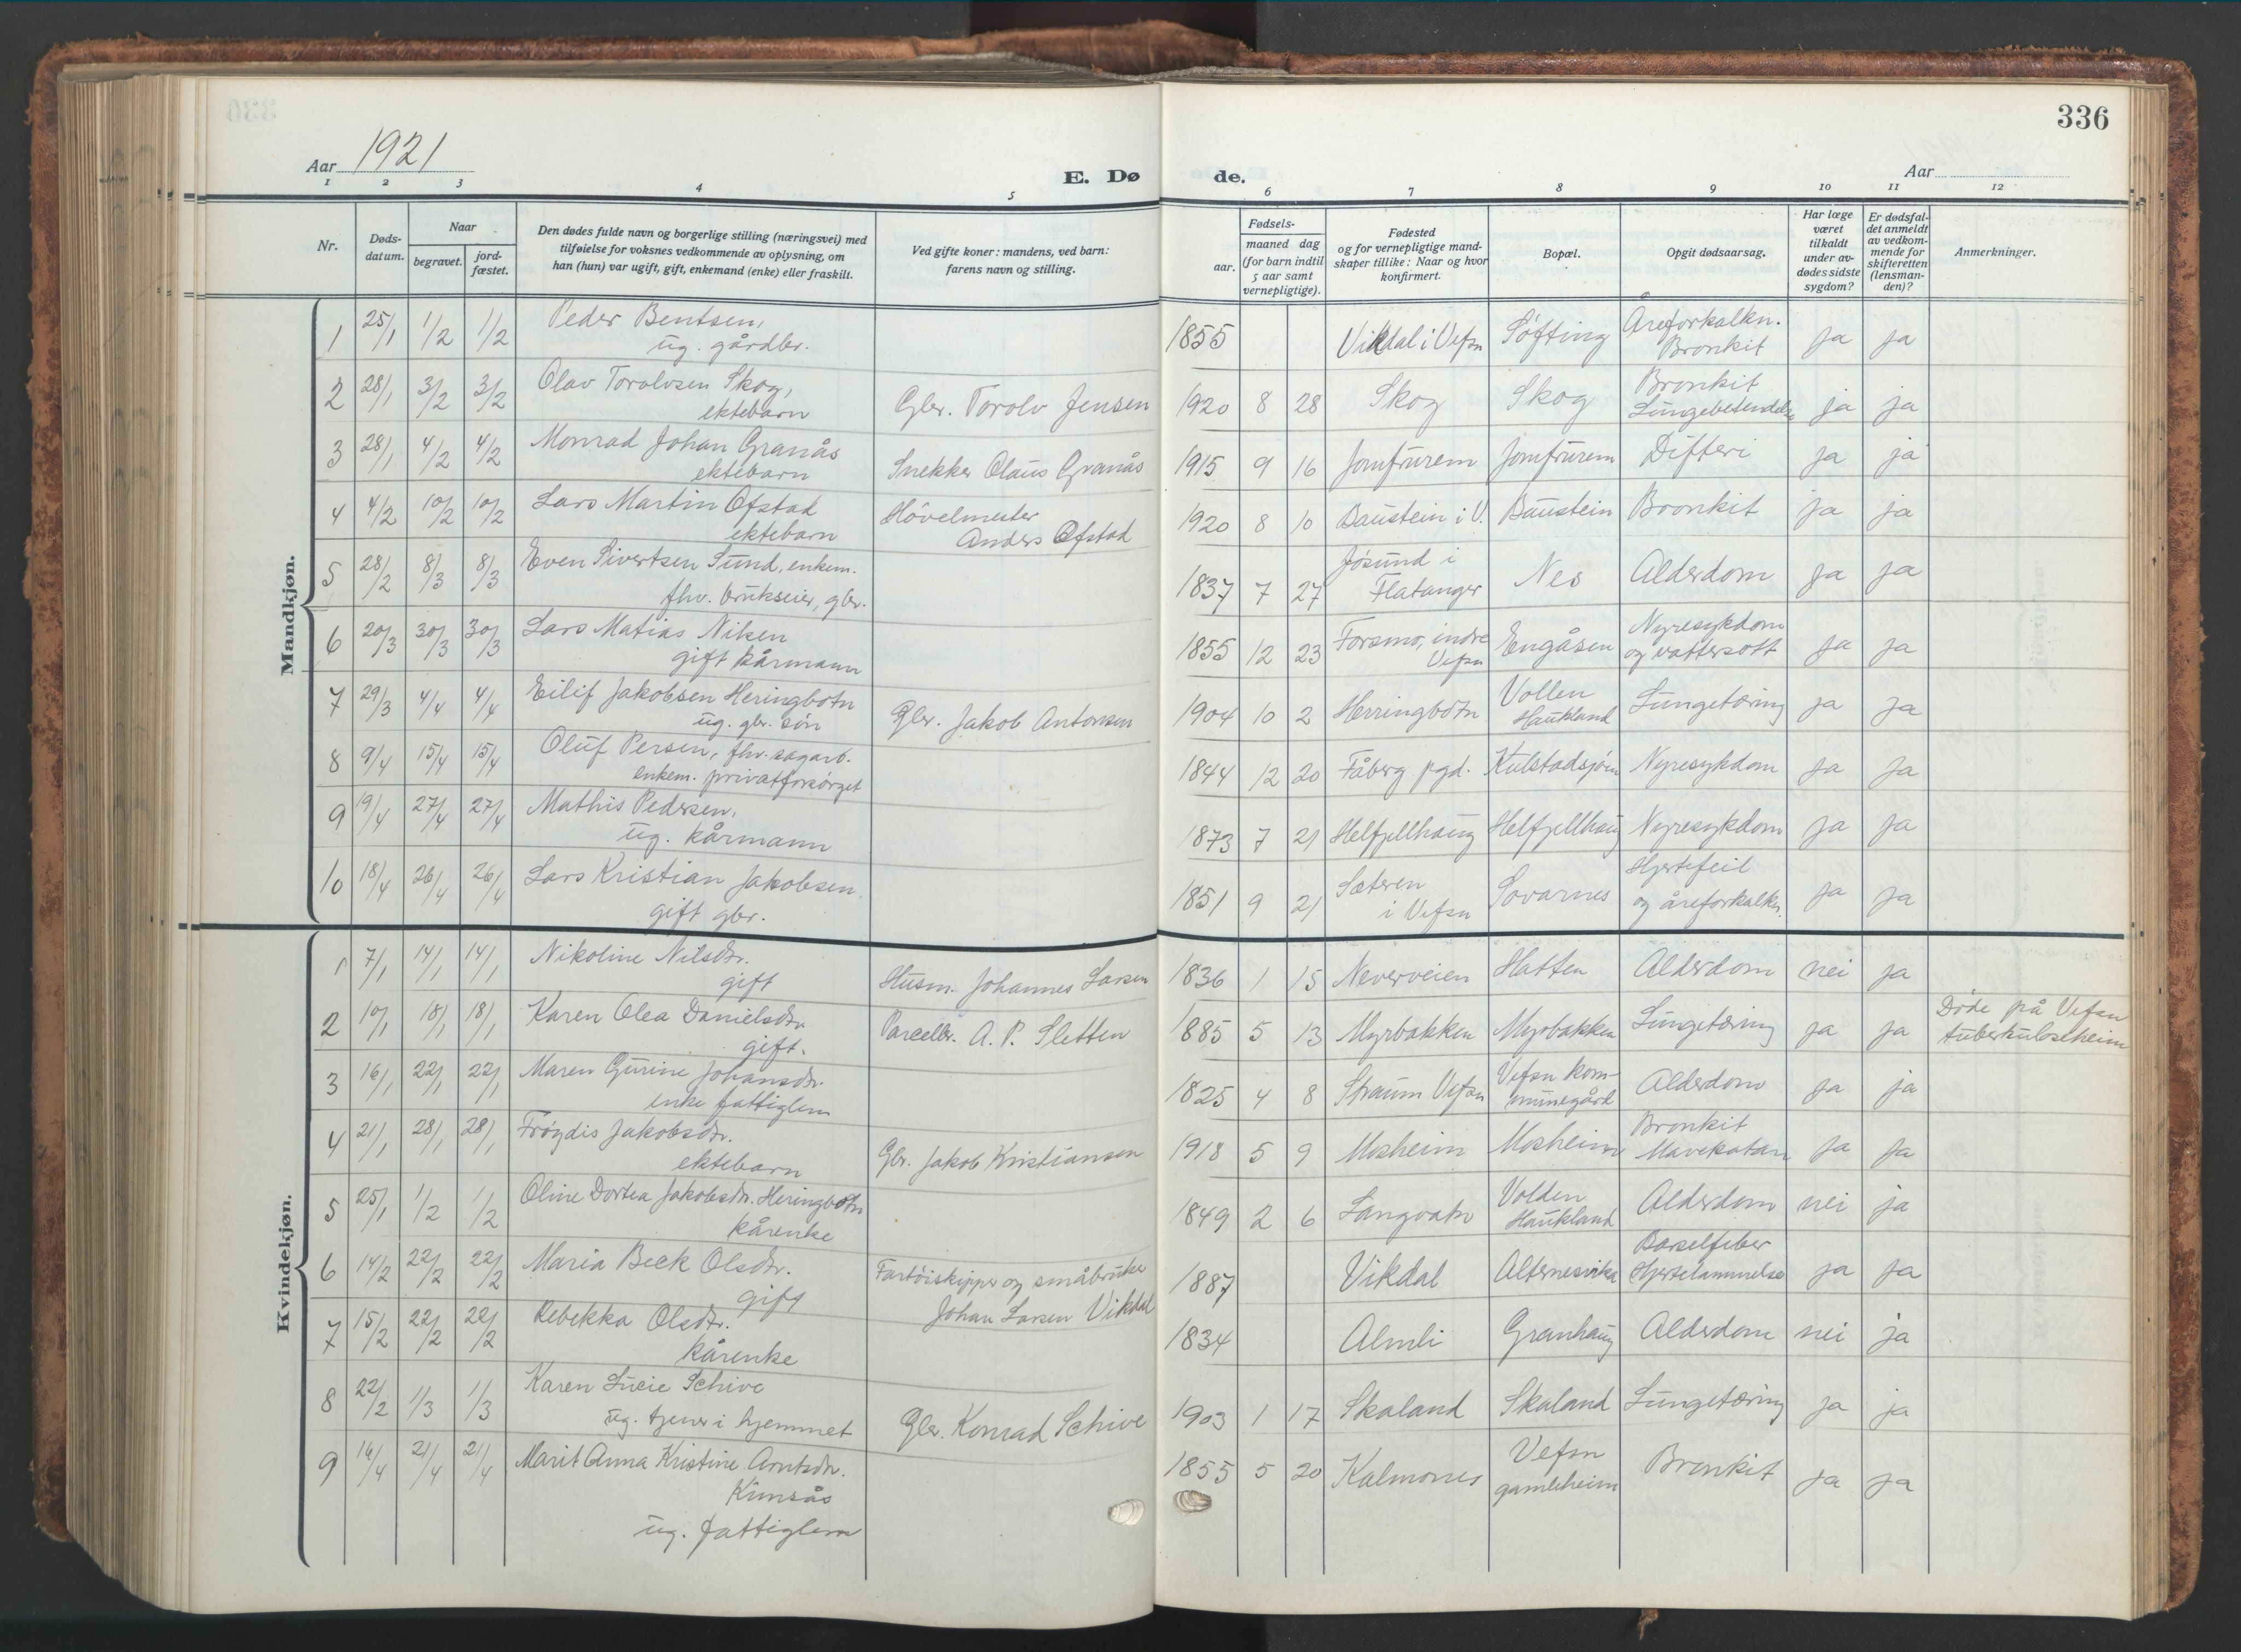 336
Aar 1921
E. Dø de.
Aar
1 2 3 4 5 6 7 8 9 10 11 12
Nr.
Døds-
datum.
Naar
begravet.
jord-
fæstet.
Den dødes fulde navn og borgerlige stilling (næringsvei) med
tilføielse for voksnes vedkommende av oplysning, om
han (hun) var ugift, gift, enkemand (enke) eller fraskilt.
Ved gifte koner: mandens, ved barn:
farens navn og stilling.
Fødsels-
aar.
maaned dag
(for barn indtil
5 aar samt
vernepligtige).
Fødested
og for vernepligtige mand-
skaper tillike: Naar og hvor
konfirmert.
Bopæl.
Opgit dødsaarsag.
Har læge
været
tilkaldt
under av-
dødes sidste
sygdom?
Er dødsfal-
det anmeldt
av vedkom-
mende for
skifteretten
(lensman-
den)?
Anmerkninger.
Mandkjøn.
1 25/1 1/2 1/2 Peder Bentsen,
ug. gårdbr.
1855 Vikdal i Vefsn Søfting Åreforkalkn.
Bronkit ja ja
2 28/1 3/2 3/2 Olav Torolvsen Skog,
ektebarn Gbr. Torolv Jensen
1920 8 28 Skog Skog Bronkit
Lungebetendelse ja ja
3 28/1 4/2 4/2 Monrad Johan Granås
ektebarn Snekker Olaus Granås
1915 9 16 Jomfrurem Jomfrurem Difteri ja ja
4 4/2 10/2 10/2 Lars Martin Øfstad
ektebarn Høvelmester
Anders Øfstad
1920 8 10 Baustein i V. Baustein Bronkit ja ja
5 28/2 8/3 8/3 Even Sivertsen Sund, enkem.
fhv. brukseier, gbr.
1837 7 27 Jøsund i
Flatanger Nes Alderdom ja ja
6 20/3 30/3 30/3 Lars Matias Niken
gift kårmann
1855 12 23 Forsmo, indre
Vefsn Engåsen Nyresykdom
og vattersott ja ja
7 29/3 4/4 4/4 Eilif Jakobsen Heringbotn
ug. gbr. søn Gbr. Jakob Antonsen
1904 10 2 Herringbotn Vollen
Haukland Lungetæring ja ja
8 9/4 15/4 15/4 Oluf Persen, fhv. sagarb.
enkem. privatforsørget
1844 12 20 Fåberg pgd. Kulstadsjøen Nyresykdom ja ja
9 19/4 27/4 27/4 Mathis Pedersen,
ug. kårmann
1873 7 21 Helfjellhaug Helfjellhaug Nyresykdom ja ja
10 18/4 26/4 26/4 Lars Kristian Jakobsen,
gift gbr.
1851 9 21 Sæteren
i Vefsn Sovarnes Hjertefeil
og åreforkalkn. ja ja
Kvindekjøn.
1 7/1 14/1 14/1 Nikoline Nilsdtr.
gift Husm. Johannes Larsen
1836 1 15 Neverveien Hatten Alderdom nei ja
2 10/1 18/1 18/1 Karen Olea Danielsdtr.
gift. Parcellbr. A. P. Sletten
1885 5 13 Myrbakken Myrbakken Lungetæring ja ja Døde på Vefsn
tuberkuloseheim
3 16/1 22/1 22/1 Maren Gurine Johansdtr.
enke fattiglem
1825 4 8 Straum Vefsn Vefsn kom-
munegård Alderdom ja ja
4 21/1 28/1 28/1 Frøydis Jakobsdtr.
ektebarn Gbr. Jakob Kristiansen
1918 5 9 Mosheim Mosheim Bronkit
Mavekatarr ja ja
5 25/1 1/2 1/2 Oline Dortea Jakobsdtr. Heringbotn
kårenke
1849 2 6 Langvatn Volden
Haukland Alderdom nei ja
6 14/2 22/2 22/2 Maria Beck Olsdtr.
gift Fartøiskipper og småbruker
Johan Larsen Vikdal
1887 Vikdal Alternesvika Barselfeber
Hjertelammelse ja ja
7 15/2 22/2 22/2 Rebekka Olsdtr.
kårenke
1834 Almli Granhaug Alderdom nei ja
8 22/2 1/3 1/3 Karen Lucie Schive
ug. tjener i hjemmet Gbr. Konrad Schive
1903 1 17 Skaland Skaland Lungetæring ja ja
9 14/4 21/4 21/4 Marit Anna Kristine Arntsdtr.
Kumsås
ug. fattiglem
1855 5 20 Kalmones Vefsn
gamleheim Bronkit ja ja